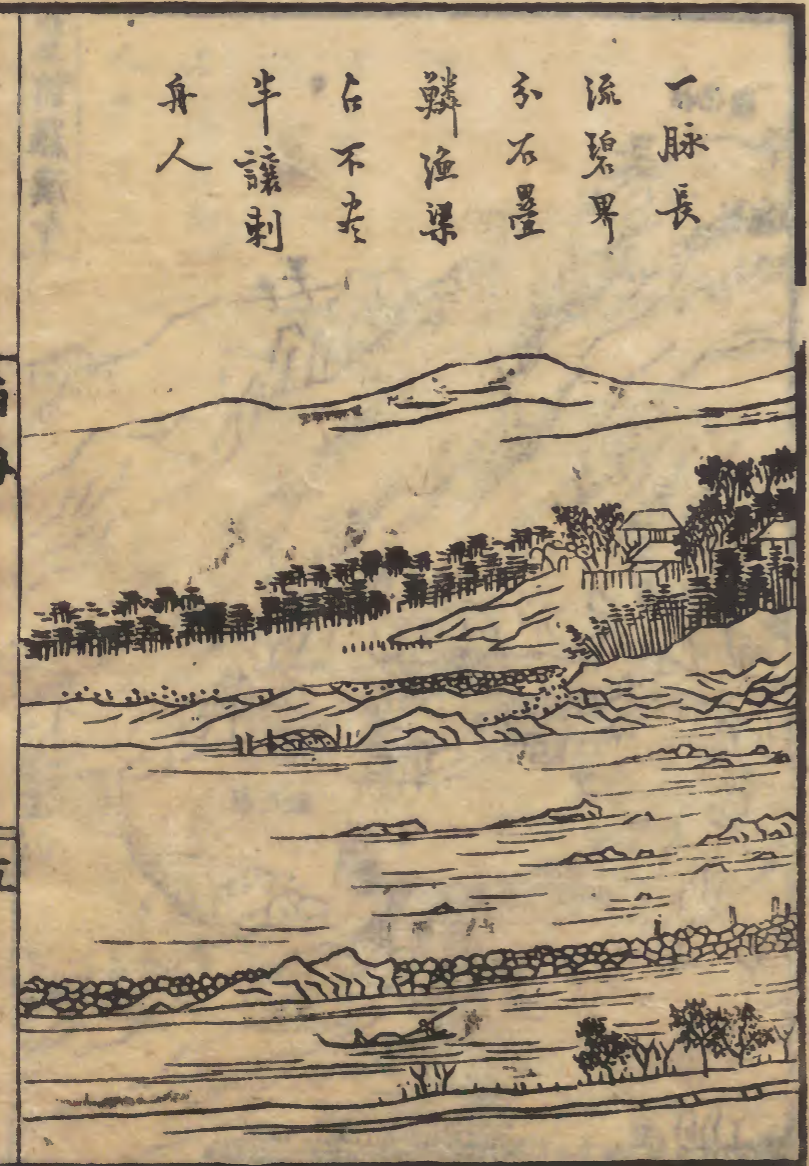 一脉長
流碧界
分石疊
鱗漁梁
占不盡
半讓刺
舟人